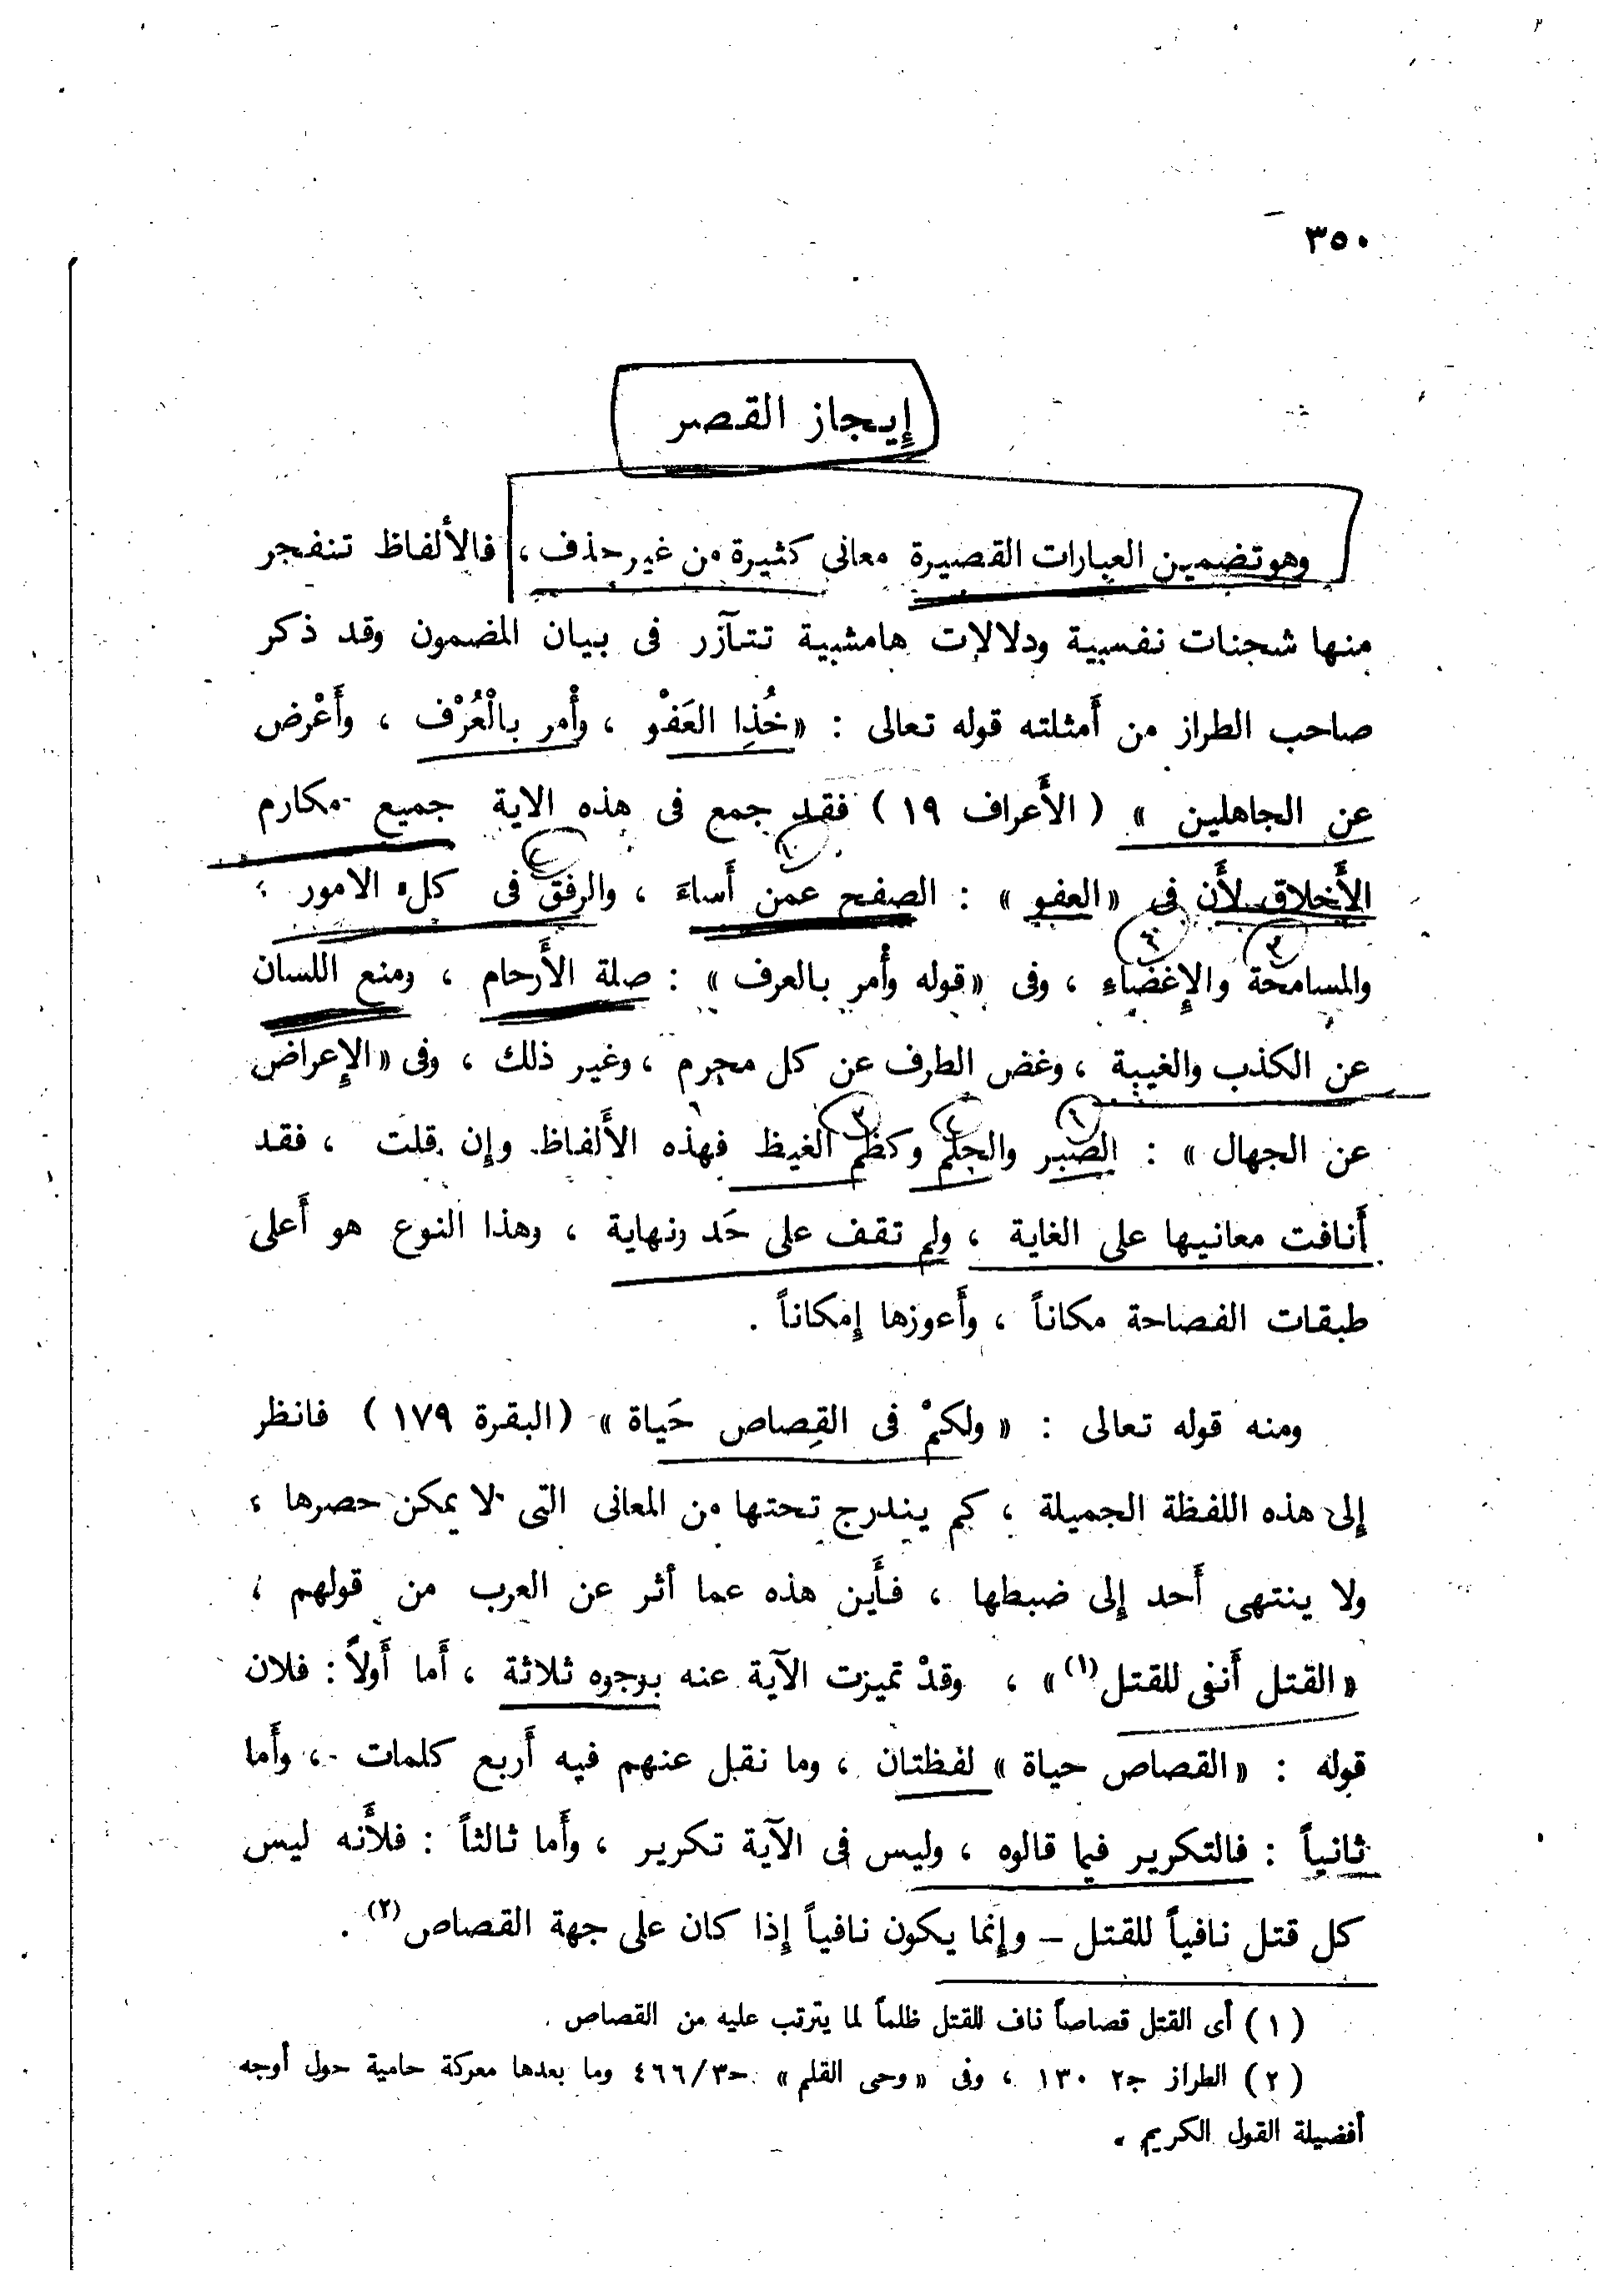 ٣٥٠
إيجاز القصر
وهو تضمين العبارات القصيرة معانى كثيرة من غير حذف ، فالألفاظ تنفجر
منها شحنات نفسية ودلالات هامشية تتآزر فى بيان المضمون وقد ذكر
صاحب الطراز من أمثلته قوله تعالى : « خُذِا العَفْو ، وأْمر بالْعُرْف ، وأَعْرض
عن الجاهلين » ( الأَعراف ١٩ ) فقد جمع فى هذه الاية جميع مكارم
الأَخلاق لأَن فى « العفو » : الصفح عمن أَساءَ ، والرفق فى كل الامور ،
والمسامحة والإِغضاءِ ، وفى « قوله وأْمر بالعرف » : صلة الأَرحام ، ومنع اللسان
عن الكذب والغيبة ، وغض الطرف عن كل محرم ، وغير ذلك ، وفى « الإِعراض
عن الجهال » : الصبر والحلم وكظم الغيظ فهذه الأَلفاظ وإن قلت ، فقد
أَنافت معانيها على الغاية ، ولم تقف على حَد ونهاية ، وهذا النوع هو أَعلى
طبقات الفصاحة مكاناً ، وأَعوزها إِمكاناً .
ومنه قوله تعالى : « ولكمْ فى القِصاص حَياة » ( البقرة ١٧٩ ) فانظر
إِلى هذه اللفظة الجميلة ، كم يندرج تحتها من المعانى التى لا يمكن حصرها ،
ولا ينتهى أَحد إِلى ضبطها ، فأَين هذه عما أثر عن العرب من قولهم ،
« القتل أَنفى للقتل (١) » ، وقدْ تميزت الآية عنه بوجوه ثلاثة ، أَما أَولاً : فلان
قوله : « القصاص حياة » لفظتان ، وما نقل عنهم فيه أَربع كلمات ، وأَما
ثانياً : فالتكرير فيما قالوه ، وليس فى الآية تكرير ، وأَما ثالثاً : فلأَنه ليس
كل قتل نافياً للقتل – وإِنما يكون نافياً إِذا كان على جهة القصاص (٢) .
( ١ ) أى القتل قصاصاً ناف للقتل ظلماً لما يترتب عليه من القصاص .
( ٢ ) الطراز ج٢ ١٣٠ ، وفى « وحى القلم » ح٤٦٦/٣ وما بعدها معركة حامية حول أوجه
أفضيلة القول الكريم .